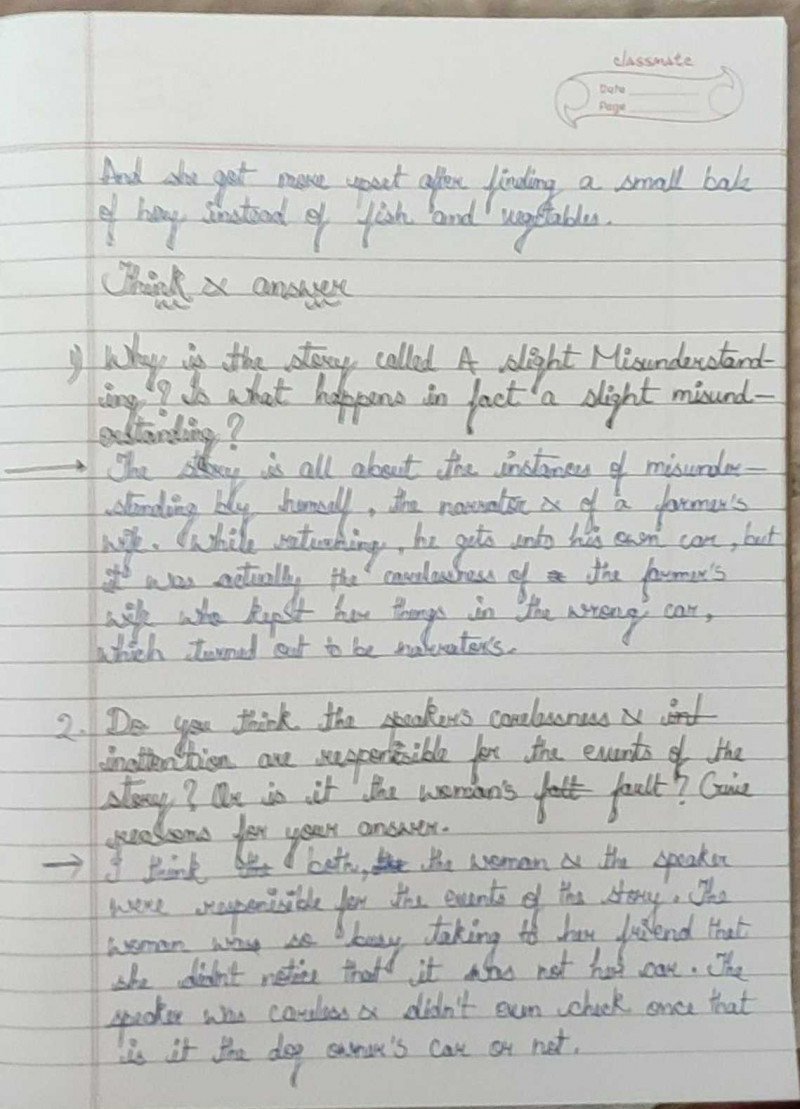 classmate
Date
Page
And she got more upset after finding a small bale
of hay instead of fish and vegetables.
Think & answer
1) Why is the story called A slight Misunderstand-
ing? Is what happens in fact a slight misund-
erstanding?
→ The story is all about the instances of misunder-
standing bly himself, the narrator & of a farmer's
wife. While returning, he gets into his own car, but
it was actually the carelessness of the farmer's
wife who kept her things in the wrong car,
which turned out to be narrator's.
2. Do you think the speaker's carelessness & int
inattention are responsible for the events of the
story? Or is it the woman's falt fault? Give
reasons for your answer.
→ I think the both, the the woman & the speaker
were responisible for the events of the story. The
woman was so busy taking to her friend that
she didn't notice that it was not her car. The
speaker was careless & didn't even check once that
is it the dog owner's car or not.